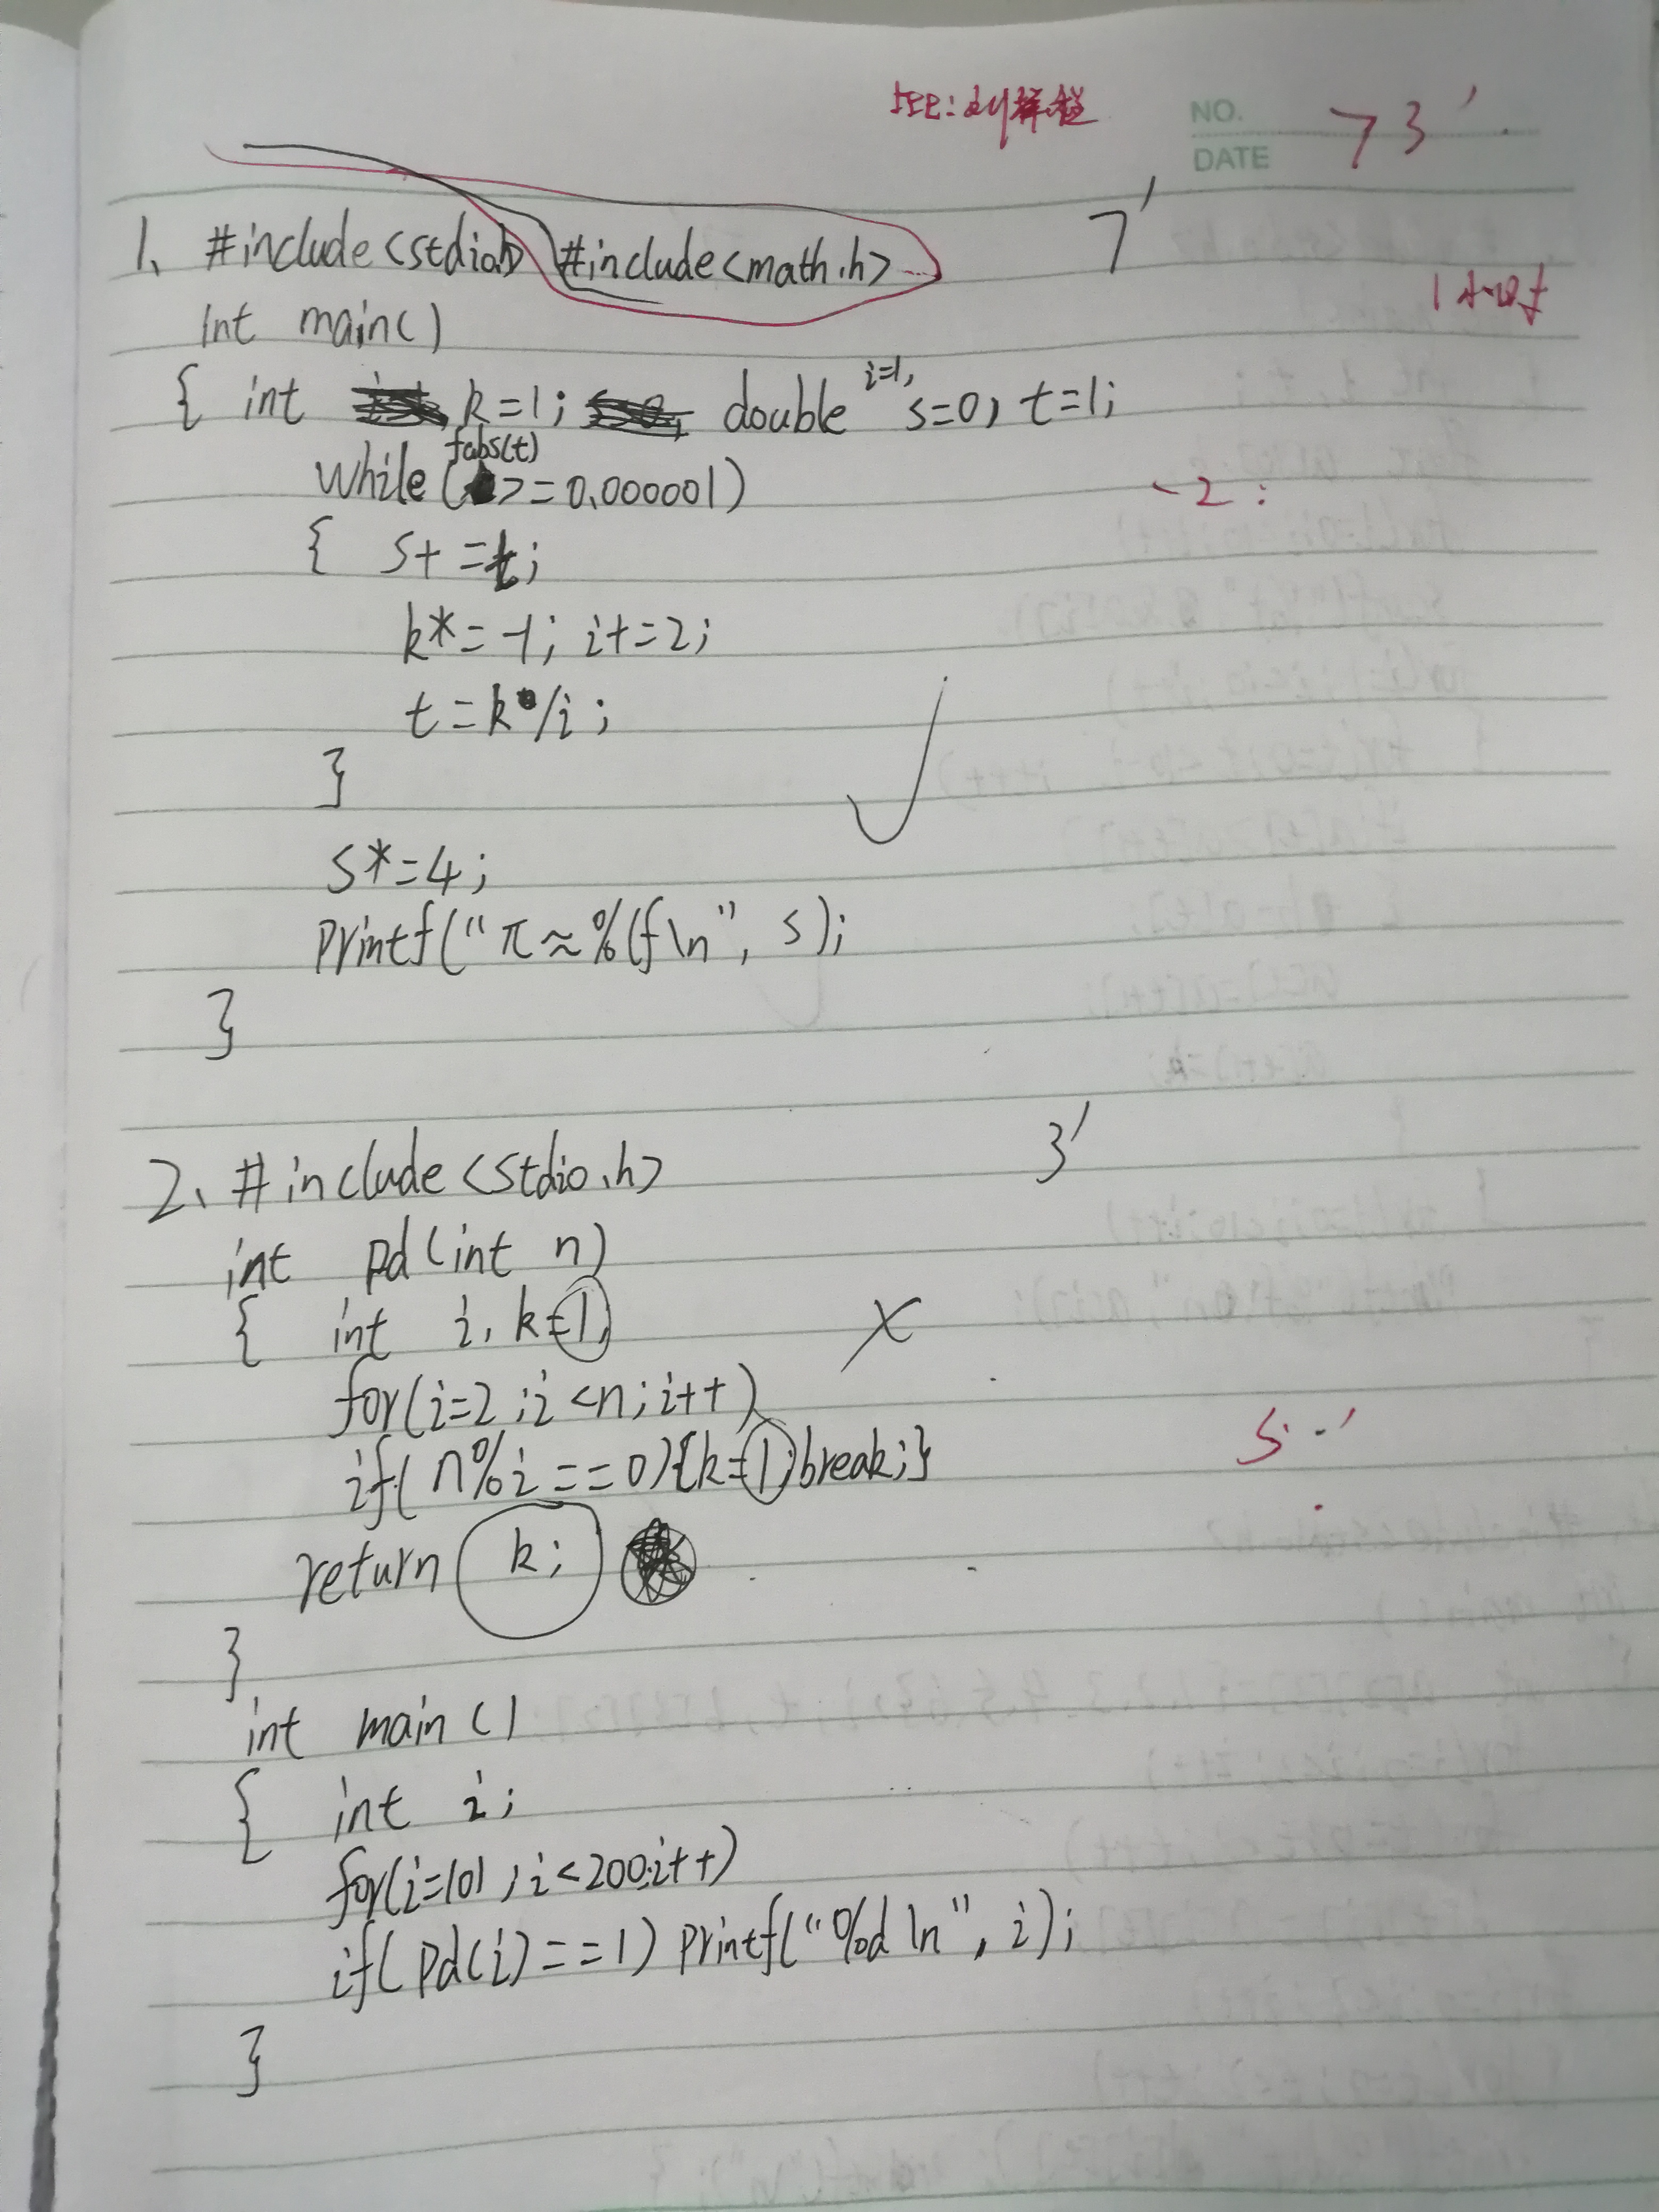 NO. 73'
DATE
7'
1、 #include<stdio.h> #include<math.h>
int main()
{ int k=1; double i=1, s=0, t=1;
while(fabs(t)>=0.000001)
-2
{ s+=t;
k*=-1; i+=2;
t=k/i;
}
s*=4;
printf("π≈%lf\n", s);
}
3'
2、 #include<stdio.h>
int pd(int n)
{ int i, k=1,
for(i=2;i<n;i++)
if(n%i==0){k=1;break;}
return k;
}
int main()
{ int i;
for(i=101;i<200;i++)
if(pd(i)==1) printf("%d\n", i);
}